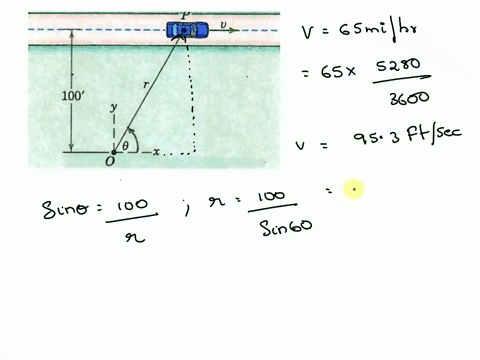 P
v
r
100'
y
θ
x
O
V = 65mi/hr
= 65 x 5280/3600
v = 95.3 Ft/sec
Sinθ = 100/r ; r = 100/Sin60 =